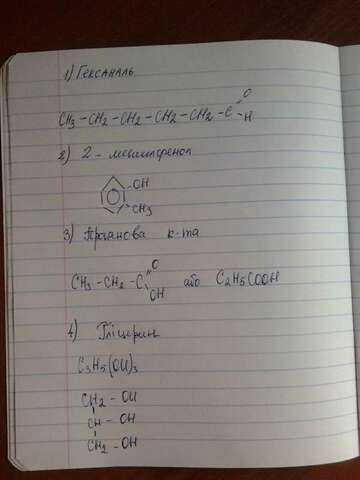 1) Гексаналь
CH3 - CH2 - CH2 - CH2 - CH2 - C = O
- H
2) 2 - метилфенол
- OH
- CH3
3) Пропанова к-та
CH3 - CH2 - C = O
\ OH
або C2H5COOH
4) Гліцерин
C3H5(OH)3
CH2 - OH
|
CH - OH
|
CH2 - OH